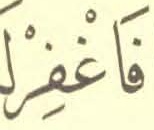 فَاغْفِرْ لَ